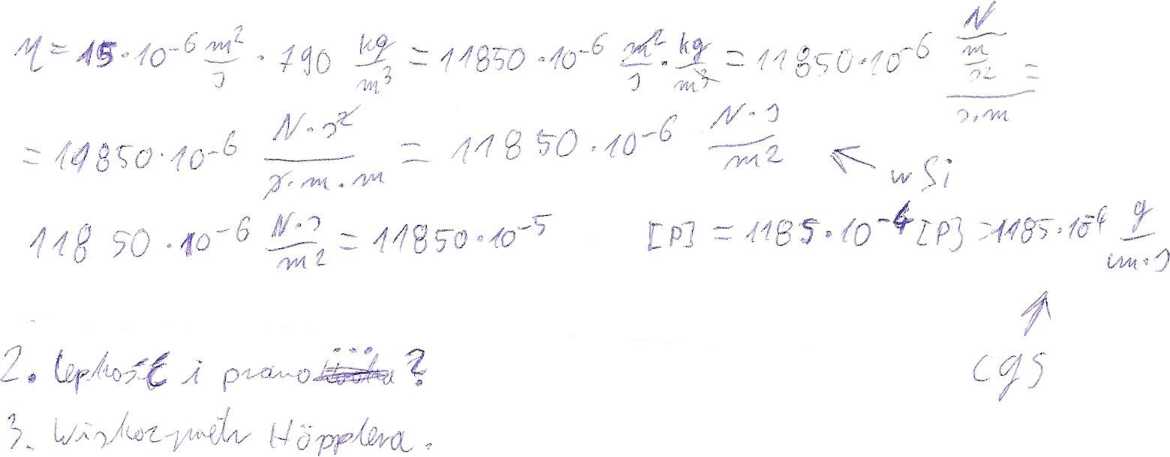 η = 15·10⁻⁶ m²/s · 790 kg/m³ = 11850·10⁻⁶ m²/s · kg/m³ = 11850·10⁻⁶ (N/(m/s²))/(s·m) =
= 11850·10⁻⁶ N·s²/(s·m·m) = 11850·10⁻⁶ N·s/m²
w Si
11850·10⁻⁶ N·s/m² = 11850·10⁻⁵ [P] = 1185·10⁻⁴ [P] = 1185·10⁻⁴ g/(cm·s)
cgs
2. Lepkość i prawo ...?
3. Wiskozymetr Höpplera.